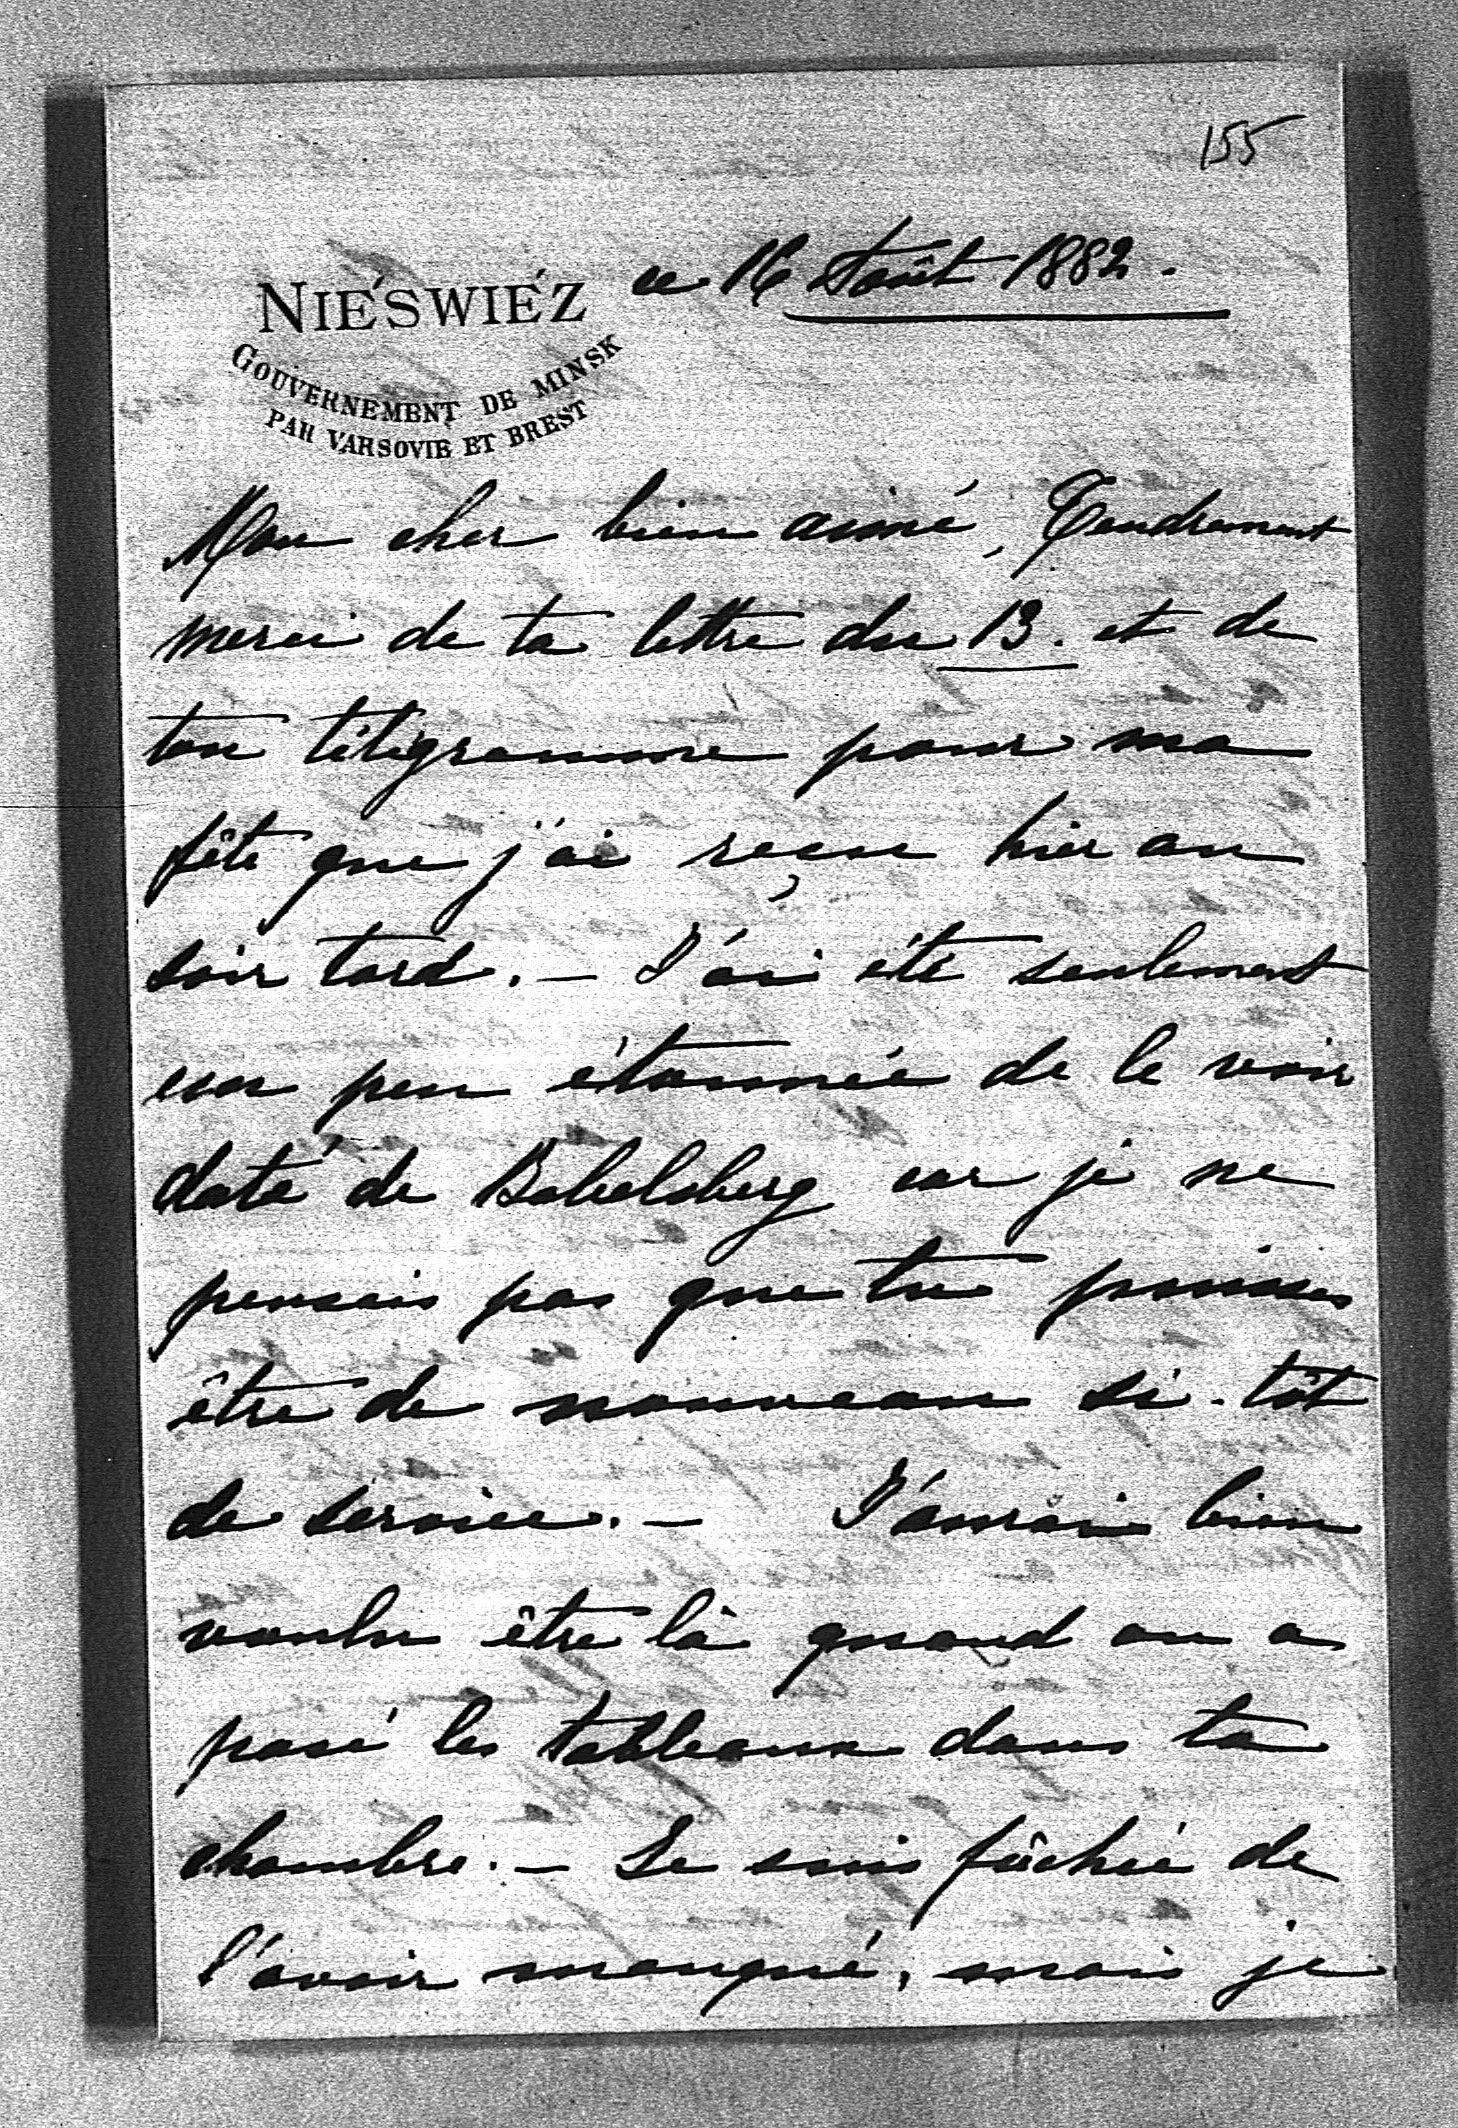 155
NIÉŚWIÉZ ce 16 Août 1882.
GOUVERNEMENT DE MINSK
PAR VARSOVIE ET BREST
Mon cher bien aimé, Tendrement
merci de ta lettre du 13. et de
ton télégramme pour ma
fête que j'ai reçu hier au
soir tard. — J'ai été seulement
un peu étonnée de le voir
daté de Babelsberg car je ne
pensais pas que tu puisses
être de nouveau si-tôt
de service. — J'aurais bien
voulu être là quand on a
posé les tableaux dans ta
chambre. — Je suis fâchée de
l'avoir manqué, mais je